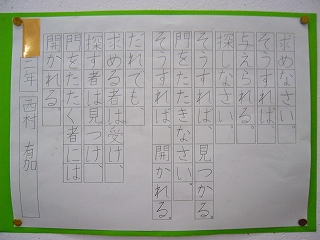 求めなさい。
そうすれば、
与えられる。
探しなさい。
そうすれば、見つかる。
門をたたきなさい。
そうすれば、開かれる。
だれでも、
求める者は受け、
探す者は見つけ、
門をたたく者には
開かれる。
年 西村 有加